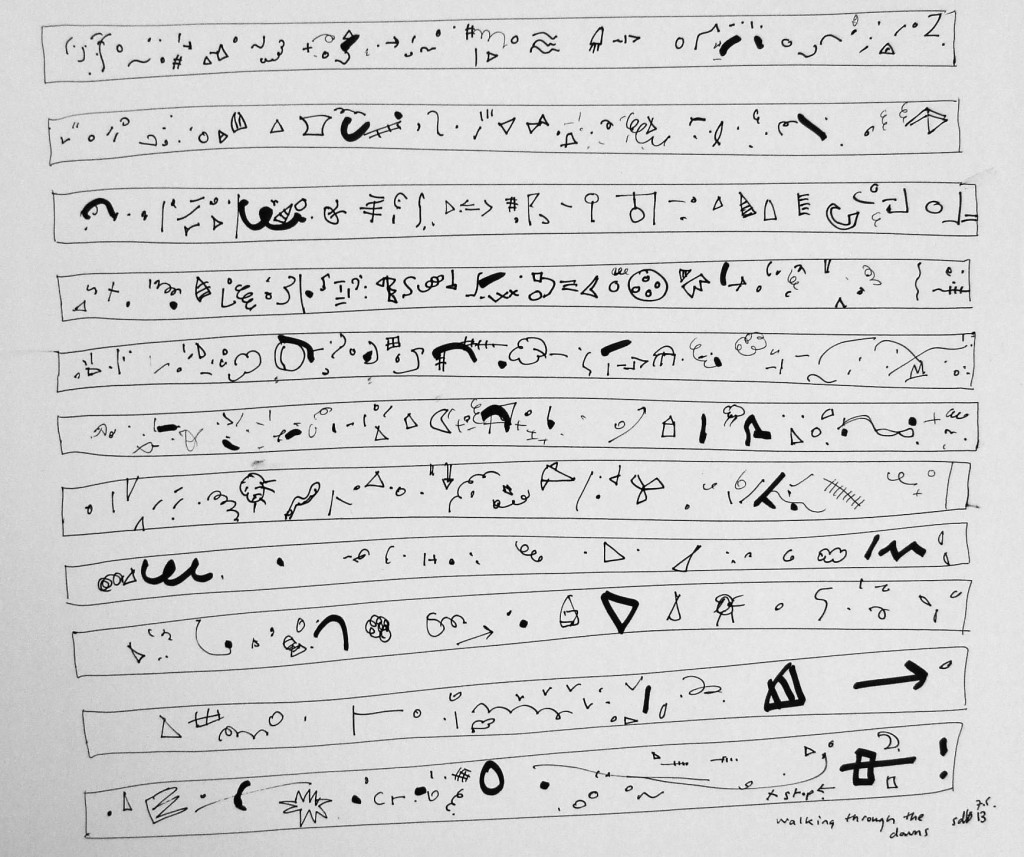 x stop
walking through the
downs
13